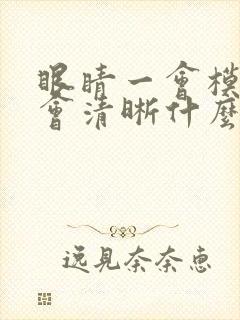 眼睛一會模
會清晰什麼
逸見奈奈惠